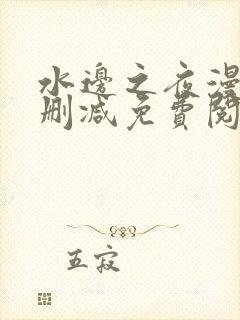 水邊之夜漫
刪減免費閱
五寂